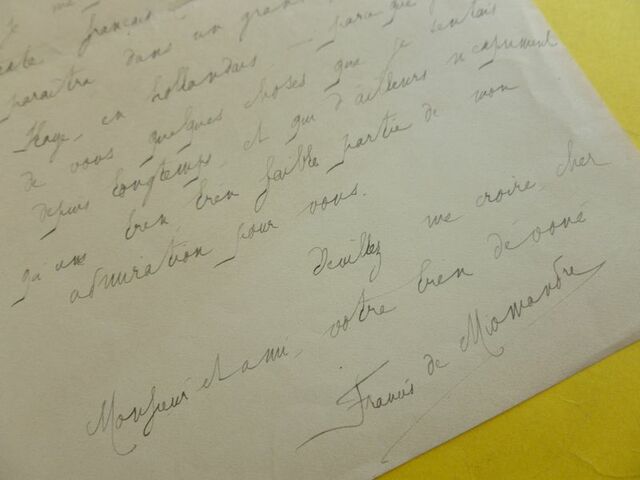 Je me
texte français
paraîtra dans un grand
Haye, en hollandais – parce que j
de vous quelques choses que je sentais
depuis longtemps, et qui d'ailleurs n'expriment
qu'une bien bien faible partie de mon
admiration pour vous.
Veuillez me croire, cher
Monsieur et ami, votre bien dévoué
Francis de Miomandre